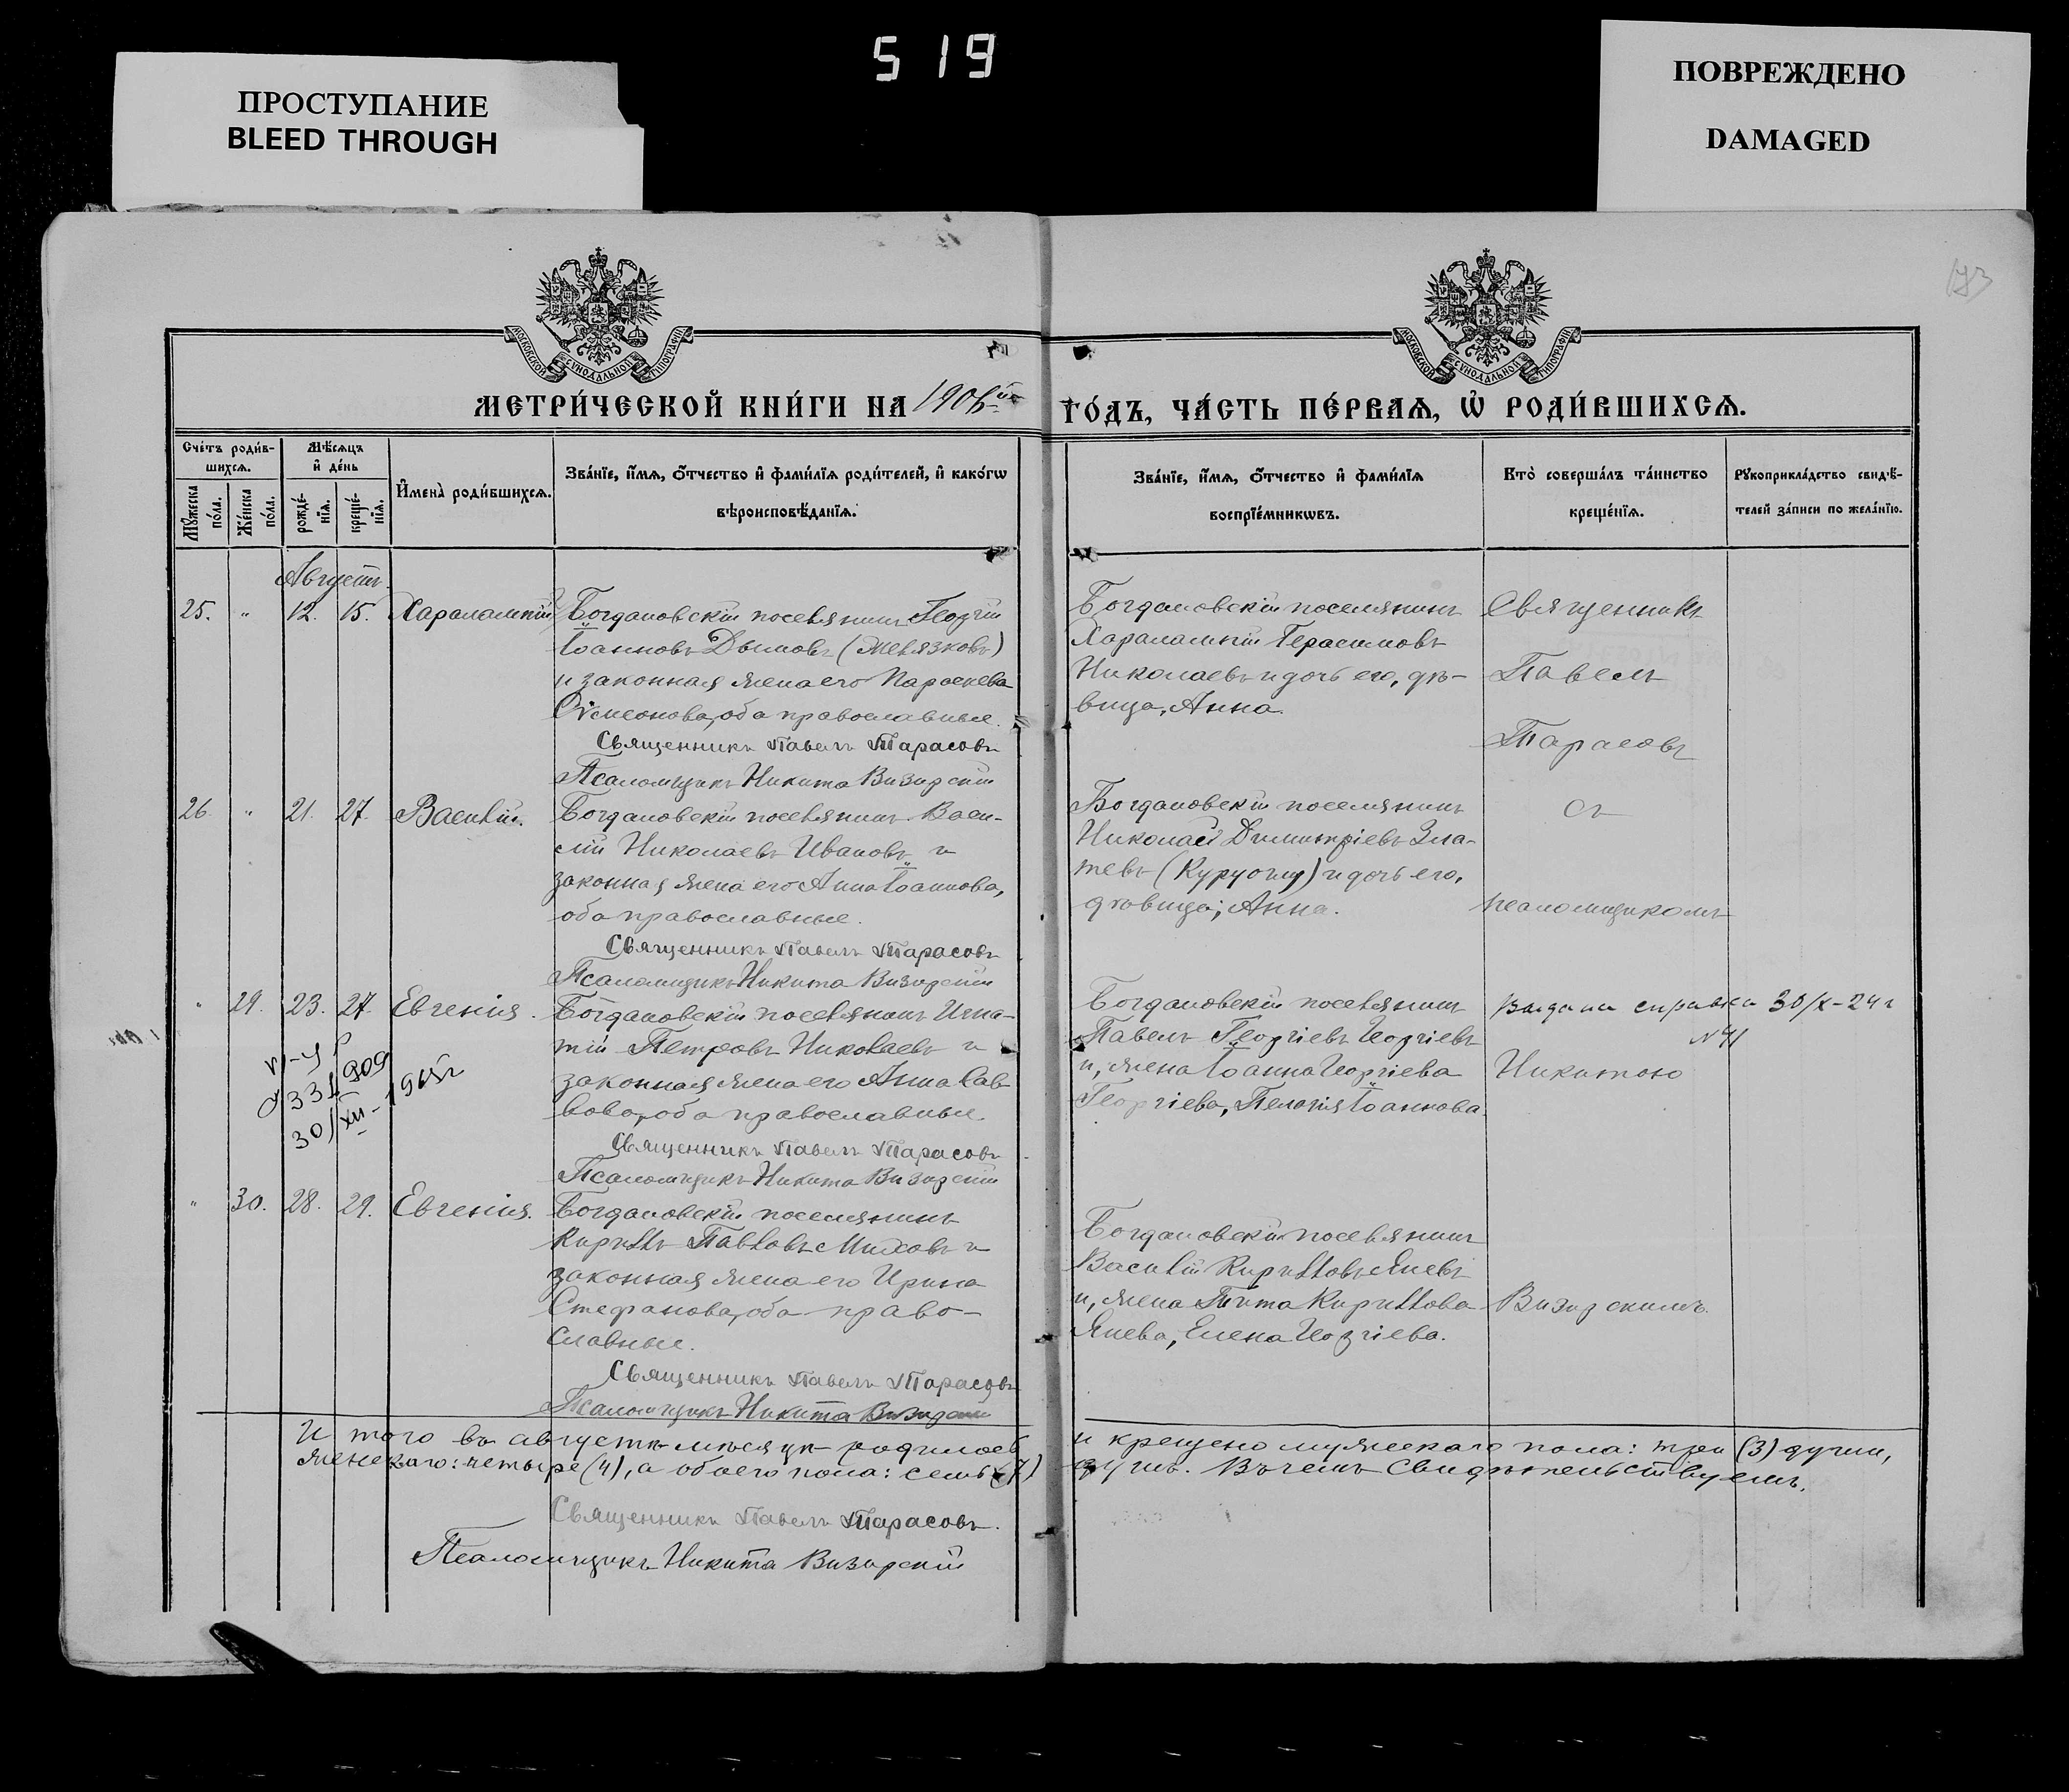 519
ПРОСТУПАНИЕ
BLEED THROUGH
ПОВРЕЖДЕНО
DAMAGED
МОСКОВСКОЙ СУНОДАЛЬНОЙ ТИПОГРАФІИ
МОСКОВСКОЙ СУНОДАЛЬНОЙ ТИПОГРАФІИ
МЕТРИ́ЧЕСКОЙ КНИ́ГИ НА 1906й ГО́ДЪ, ЧА́СТЬ ПЕ́РВАЯ, Ѡ РОДИ́ВШИХСЯ.
Сче́тъ роди́в-
шихся.
Мꙋ́жеска по́ла.
Же́нска по́ла.
Мѣ́сяцъ
и҆ де́нь
рожде́-
нїя.
креще́-
нїя.
И҆мена̀ роди́вшихся.
Зва́нїе, и҆́мя, ѻ҆́тчество и҆ фами́лїя роди́телей, и҆ како́гѡ
вѣроисповѣ́данїя.
Зва́нїе, и҆́мя, ѻ҆́тчество и҆ фами́лїя
воспрїе́мникѡвъ.
Кто̀ соверша́лъ та́инство
креще́нїя.
Рꙋкоприкла́дство свидѣ́-
телей за́писи по жела́нїю.
Августъ
25. " 12. 15. Харалампій
Богдановскій поселянинъ Георгій
Іоанновъ Дымовъ (Желязковъ)
и законная жена его Параскева
Сѵмеонова, оба православные.
Священникъ Павелъ Тарасовъ
Псаломщикъ Никита Визирскій
Богдановскій поселянинъ
Харалампій Герасимовъ
Николаевъ и дочь его, дѣ-
вица, Анна.
Священникъ
Павелъ
Тарасовъ
26. " 21. 27. Василій.
Богдановскій поселянинъ Васи-
лій Николаевъ Ивановъ и
законная жена его Анна Іоаннова,
оба православные.
Священникъ Павелъ Тарасовъ
Псаломщикъ Никита Визирскій
Богдановскій поселянинъ
Николай Димитріевъ Зла-
тевъ и дочь его,
дѣвица, Анна.
съ
псаломщикомъ
" 29. 23. 27. Евгенія.
Богдановскій поселянинъ Игна-
тій Петровъ Николаевъ и
законная жена его Анна Сав-
вова, оба православные.
Священникъ Павелъ Тарасовъ
Псаломщикъ Никита Визирскій
30/XII
Богдановскій поселянинъ
Павелъ Георгіевъ Георгіевъ
и, жена Іоанна Георгіева
Георгіева, Пелагія Іоаннова.
Выдана справка 30/X-24 г
№ 41
Никитою
" 30. 28. 29. Евгенія.
Богдановскій поселянинъ
Кириллъ Павловъ Миховъ и
законная жена его Ирина
Стефанова, оба право-
славные.
Священникъ Павелъ Тарасовъ
Псаломщикъ Никита Визирскій
Богдановскій поселянинъ
Василій Кирилловъ Яневъ
и, жена Кириллова
Янева, Елена Георгіева.
Визирскимъ.
И того въ августѣ мѣсяцѣ родилось и крещено мужескаго пола: три (3) души,
женскаго: четыре (4), а обоего пола: семь (7) душъ. Въ чемъ свидѣтельствуемъ.
Священникъ Павелъ Тарасовъ.
Псаломщикъ Никита Визирскій